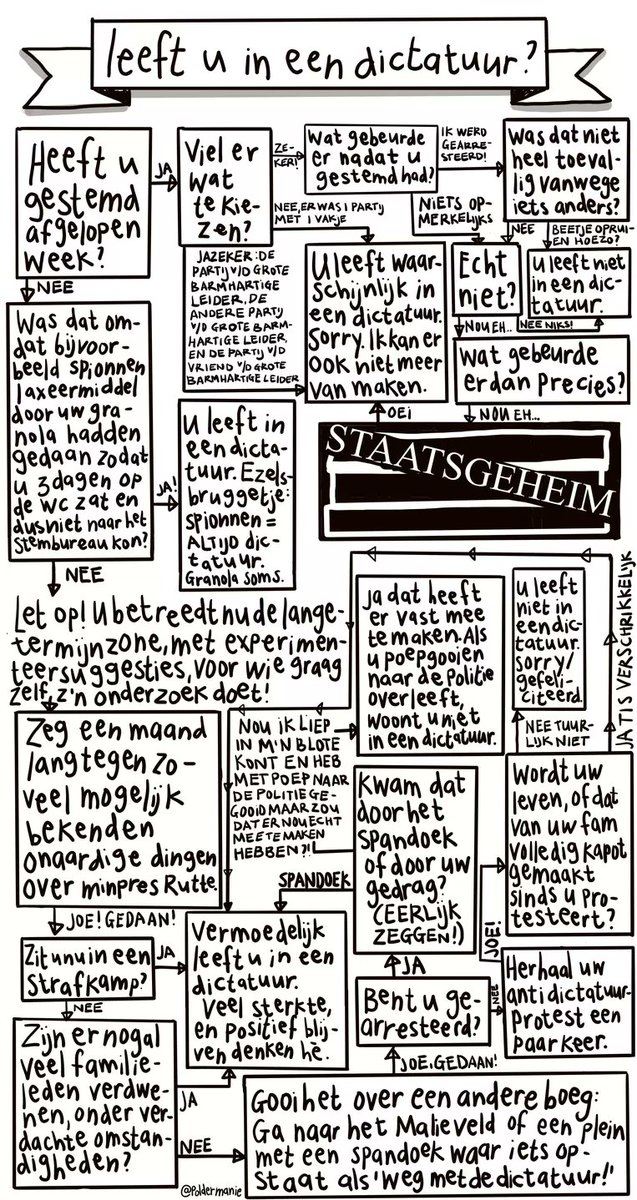 leeft u in een dictatuur?
Heeft u
gestemd
afgelopen
week?
JA
Viel er
wat
te kie-
zen?
ZE-
KER!
Wat gebeurde
er nadat u
gestemd had?
IK WERD
GEARRE-
STEERD!
Was dat niet
heel toeval-
lig vanwege
iets anders?
NEE, ER WAS 1 PARTIJ
MET 1 VAKJE
NIETS OP-
MERKELIJKS
NEE
BEETJE OPRUI-
EN HOEZO?
JAZEKER: DE
PARTIJ V/D GROTE
BARMHARTIGE
LEIDER, DE
ANDERE PARTIJ
V/D GROTE BARM-
HARTIGE LEIDER,
EN DE PARTIJ V/D
VRIEND V/D GROTE
BARMHARTIGE LEIDER
U leeft waar-
schijnlijk in
een dictatuur.
Sorry. Ik kan er
ook niet meer
van maken.
Echt
niet?
U leeft niet
in een dic-
tatuur.
NOU EH..
NEE NIKS!
Wat gebeurde
er dan precies?
OEI
NOU EH...
STAATSGEHEIM
NEE
Was dat om-
dat bijvoor-
beeld spionnen
laxeermiddel
door uw gra-
nola hadden
gedaan zodat
u 3 dagen op
de wc zat en
dus niet naar het
stembureau kon?
JA!
U leeft in
een dicta-
tuur. Ezels-
bruggetje:
spionnen =
ALTIJD dic-
tatuur.
Granola soms.
NEE
Let op! U betreedt nu de lange-
termijnzone, met experimen-
teersuggesties, voor wie graag
zelf z'n onderzoek doet!
Zeg een maand
lang tegen zo-
veel mogelijk
bekenden
onaardige dingen
over minpres Rutte.
JOE! GEDAAN!
Zit u nu in een
Strafkamp?
JA
NEE
Zijn er nogal
veel familie-
leden verdwe-
nen, onder ver-
dachte omstan-
digheden?
JA
NEE
Vermoedelijk
leeft u in een
dictatuur.
Veel sterkte,
en positief blij-
ven denken hè.
Gooi het over een andere boeg:
Ga naar het Malieveld of een plein
met een spandoek waar iets op-
staat als 'weg met de dictatuur!'
JOE, GEDAAN!
Bent u ge-
arresteerd?
JA
NEE
Kwam dat
door het
spandoek
of door uw
gedrag?
(EERLIJK
ZEGGEN!)
SPANDOEK
NOU IK LIEP
IN M'N BLOTE
KONT EN HEB
MET POEP NAAR
DE POLITIE GE-
GOOID MAAR ZOU
DAT ER NOU ECHT
MEE TE MAKEN
HEBBEN?!
Ja dat heeft
er vast mee
te maken. Als
u poepgooien
naar de politie
overleeft,
woont u niet
in een dictatuur.
Herhaal uw
antidictatuur-
protest een
paar keer.
JOE!
Wordt uw
leven, of dat
van uw fam
volledig kapot
gemaakt
sinds u pro-
testeert?
NEE TUUR-
LIJK NIET
U leeft
niet in
een dic-
tatuur.
sorry/
gefeli-
citeerd.
JA T IS VERSCHRIKKELIJK
@Poldermanie